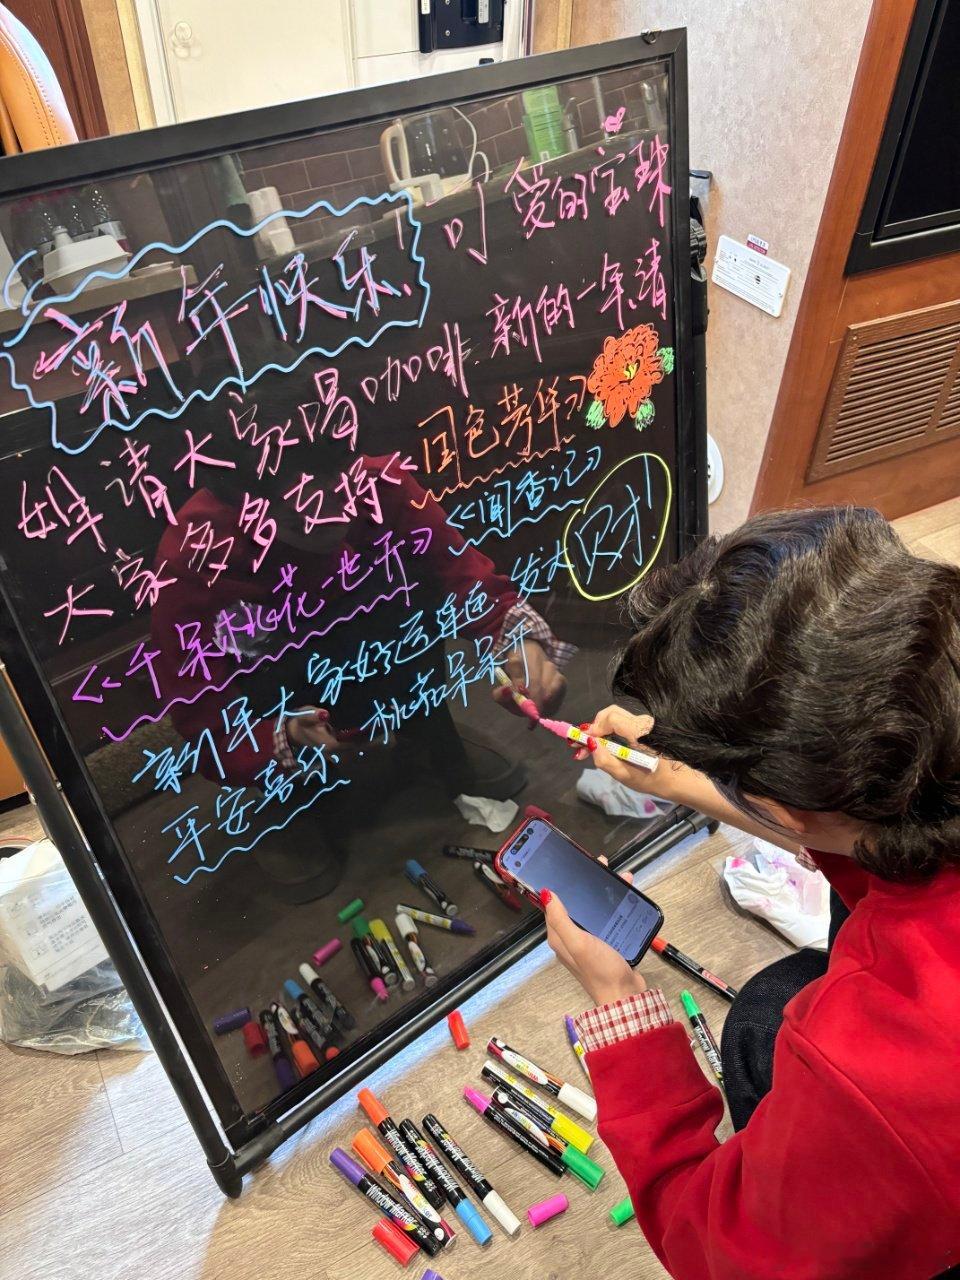 新年快乐,
可爱的宝珠
姐请大家喝咖啡.新的一年,请
大家多多支持《国色芳华》
《千朵桃花一世开》《闻香记》
新年大家好运连连.发大财!
平安喜乐.桃花朵朵开
Window Marker
Window Marker
Window Marker
Window Marker